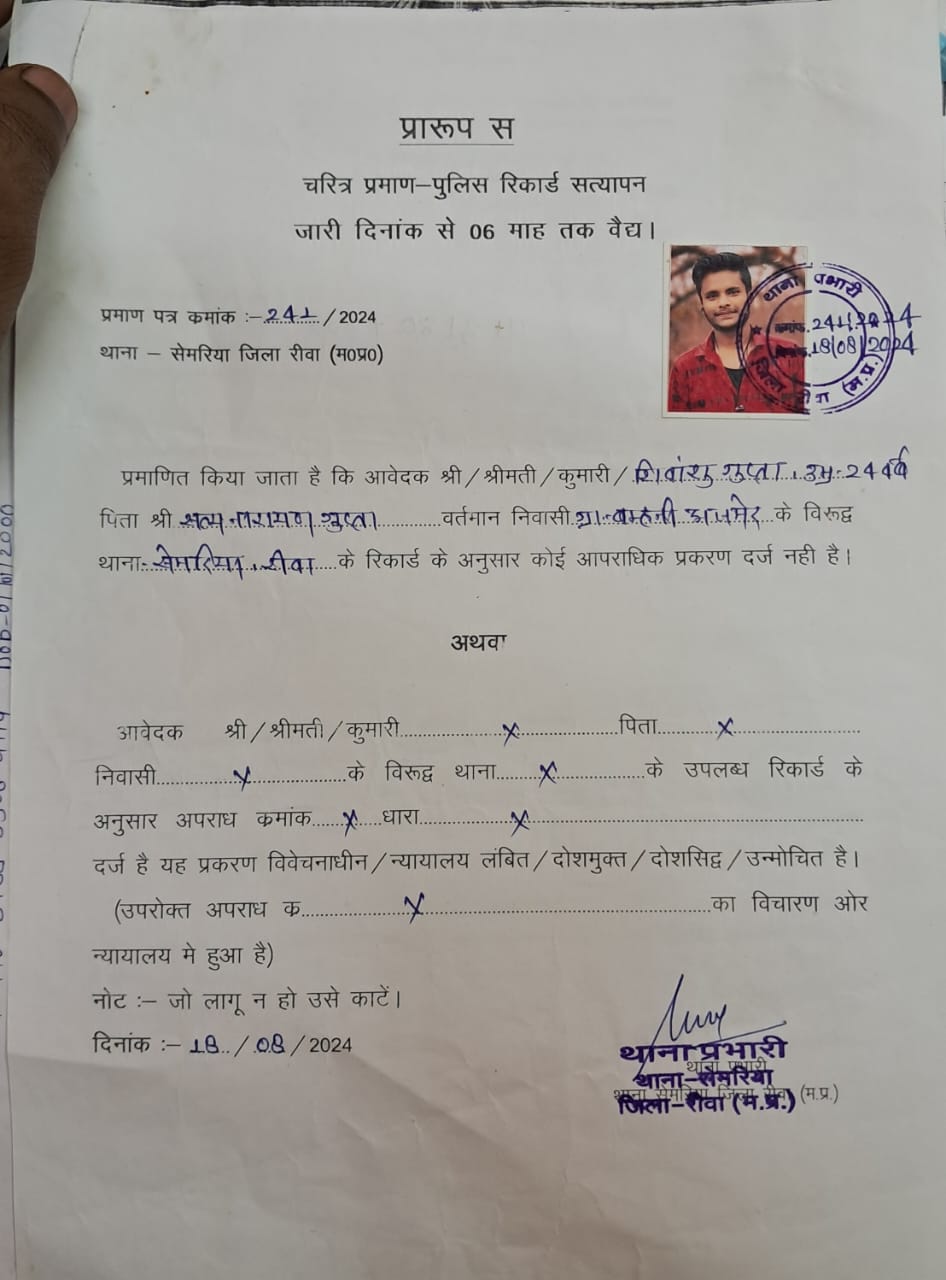 प्रारूप स
चरित्र प्रमाण–पुलिस रिकार्ड सत्यापन
जारी दिनांक से 06 माह तक वैद्य।
प्रमाण पत्र कमांक :– 241 / 2024
थाना – सेमरिया जिला रीवा (म0प्र0)
थाना प्रभारी
कमांक. 241/2024
दिनांक. 18/08/2024
जिला रीवा (म.प्र.)
प्रमाणित किया जाता है कि आवेदक श्री / श्रीमती / कुमारी / शिवांशु गुप्ता, उम्र-24 वर्ष
पिता श्री सत्य नारायण गुप्ता वर्तमान निवासी ग्रा- के विरूद्व
थाना- सेमरिया, रीवा के रिकार्ड के अनुसार कोई आपराधिक प्रकरण दर्ज नही है।
अथवा
आवेदक श्री / श्रीमती / कुमारी x पिता x
निवासी x के विरूद्व थाना x के उपलब्ध रिकार्ड के
अनुसार अपराध कमांक x धारा x
दर्ज है यह प्रकरण विवेचनाधीन / न्यायालय लंबित / दोशमुक्त / दोशसिद्व / उन्मोचित है।
(उपरोक्त अपराध क x का विचारण ओर
न्यायालय मे हुआ है)
नोट :– जो लागू न हो उसे काटें।
दिनांक :– 18 / 08 / 2024
थाना प्रभारी
थाना प्रभारी
थाना-सेमरिया
थाना सेमरिया जिला रीवा (म.प्र.)
जिला-रीवा (म.प्र.)